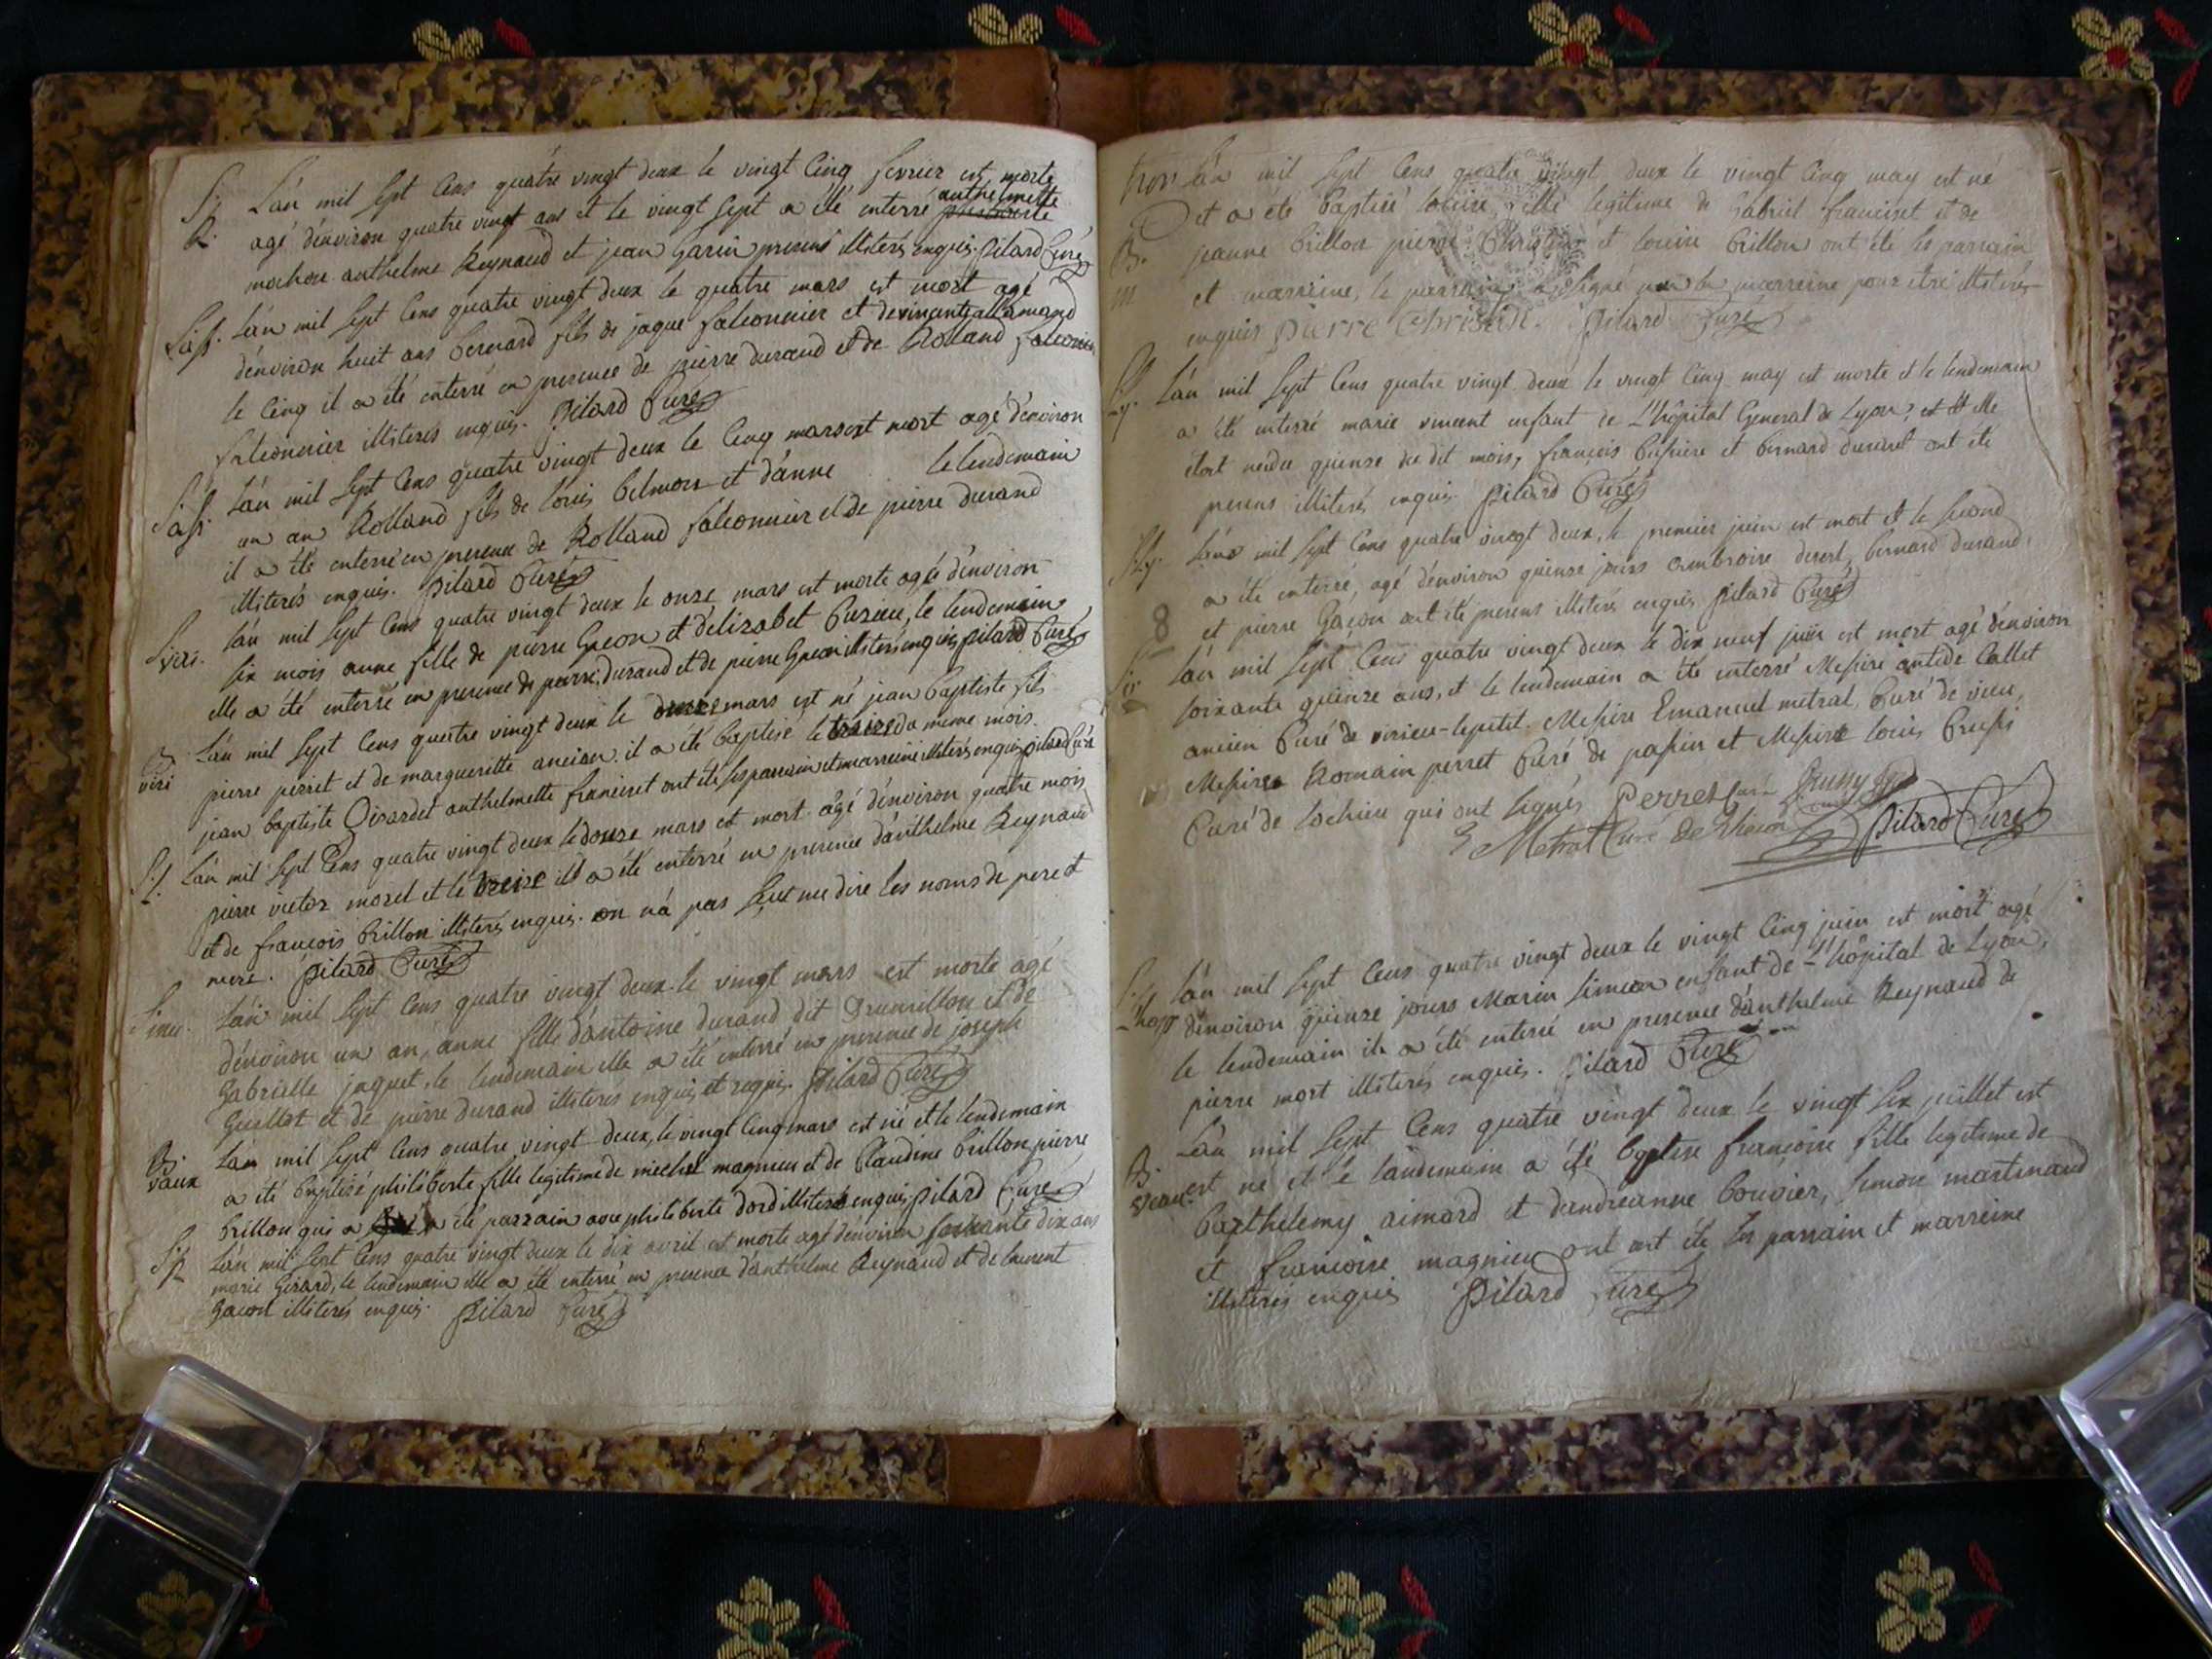 L'an mil sept cens quatre vingt deux le vingt cinq fevrier est morte
agé d'environ quatre vingt ans et le vingt sept a été interré anthelmette
mochon anthelme Reynaud et jean Garin presens illiterés enquis. Pilard Curé
L'an mil sept cens quatre vingt deux le quatre mars est mort agé
d'environ huit ans bernard fils de jaque falconnier et de vincente allamand
le cinq il a été interré en presence de pierre durand et de Rolland falconnier
falconnier illiterés enquis. Pilard Curé
L'an mil sept cens quatre vingt deux le cinq mars est mort agé d'environ
un an Rolland fils de louis belmon et d'anne le lendemain
il a été interré en presence de Rolland falconnier et de pierre durand
illiterés enquis. Pilard Curé
L'an mil sept cens quatre vingt deux le onze mars est morte agée d'environ
six mois anne fille de pierre Gacon et d'elizabet Cuzieu, le lendemain
elle a été interré en presence de pierre durand et de pierre Gacon illiterés enquis Pilard Curé
viri
L'an mil sept cens quatre vingt deux le mars est né jean baptiste fils
pierre perret et de margueritte ancian. il a été baptisé le treize du meme mois.
jean baptiste Girardet anthelmette franciset ont été les parrain et marreine illiterés enquis Pilard Curé
L'an mil sept cens quatre vingt deux le douze mars est mort agé d'environ quatre mois
pierre victor morel et le treize il a été interré en presence d'anthelme Reynaud
et de françois brillon illiterés enquis. on n'a pas sçut me dire les noms de pere et
mere. Pilard Curé
L'an mil sept cens quatre vingt deux le vingt mars est morte agé
d'environ un an, anne fille d'antoine durand dit Drumillon et de
Gabrielle jaquet, le lendemain elle a été interré en presence de joseph
Guillot et de pierre durand illiterés enquis et requis. Pilard Curé
B.
vaux
L'an mil sept cens quatre vingt deux, le vingt cinq mars est né et le lendemain
a été baptisé philiberte fille legitime de michel magnieu et de Claudine brillon, pierre
brillon qui a été parrain avec philiberte dord illiterés enquis Pilard Curé
L'an mil sept cens quatre vingt deux le dix avril est morte agé d'environ soixante dix ans
marie Girard, le lendemain elle a été interré en presence d'anthelme Reynaud et de laurent
Gacon illiterés enquis. Pilard Curé
L'an mil sept cens quatre vingt deux le vingt cinq may est né
et a été baptisé louise, fille legitime de Gabriel franciset et de
B.
jeanne brillon pierre Christin et louise brillon ont été les parrain
m
et marreine, le parrain a signé non la marreine pour etre illiterés
enquis pierre Christin. Pilard Curé
L'an mil sept cens quatre vingt deux le vingt cinq may est morte et le lendemain
a été interré marie vincent enfant de L'hôpital General de Lyon, et elle
étoit neidu quinze du dit mois, françois bussiere et bernard durand ont été
presens illiterés enquis. Pilard Curé
L'an mil sept cens quatre vingt deux, le premier juin est mort et le second
a été interré, agé d'environ quinze jours ambroise desert, bernard durand,
8
et pierre Gacon ont été presens illiterés enquis Pilard Curé
L'an mil sept cens quatre vingt deux le dix neuf juin est mort agé d'environ
soixante quinze ans, et le lendemain a été interré Messire antide Callet
ancien Curé de virieu-lepetit. Messire Emanuel metral, Curé de vieu,
Messire Romain perret Curé de passin et Messire louis brussi
Curé de lochieu qui ont signés Perret curé Brussy curé
E Metral Curé de Vieu Pilard Curé
L'an mil sept cens quatre vingt deux le vingt cinq juin est mort agé
L'hop
d'environ quinze jours Marin simeon enfant de L'hôpital de Lyon,
le lendemain il a été interré en presence d'anthelme Reynaud de
pierre mort illiterés enquis. Pilard Curé
L'an mil sept cens quatre vingt deux le vingt six juillet est
B.
est né et le landemain a été baptisé françoise fille legitime de
barthelemy aimard et d'andreanne bouvier, simon martinand
et françoise magnieu ont ont été les parrain et marreine
illiterés enquis Pilard Curé